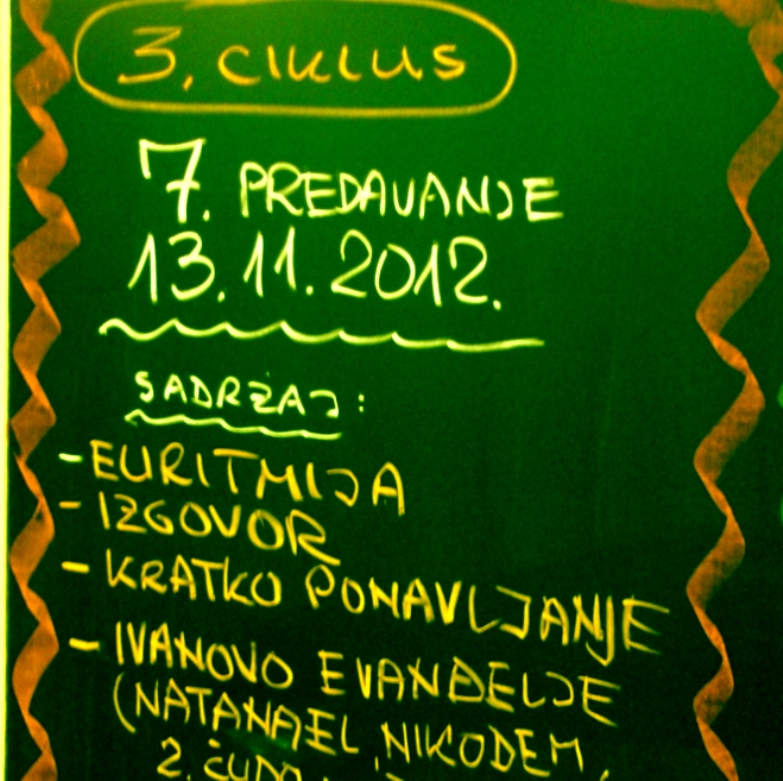 3. CIKLUS
7. PREDAVANJE
13.11.2012.
SADRŽAJ:
- EURITMIJA
- IZGOVOR
- KRATKO PONAVLJANJE
- IVANOVO EVANĐELJE
(NATANAEL, NIKODEM,
2. ČUDO